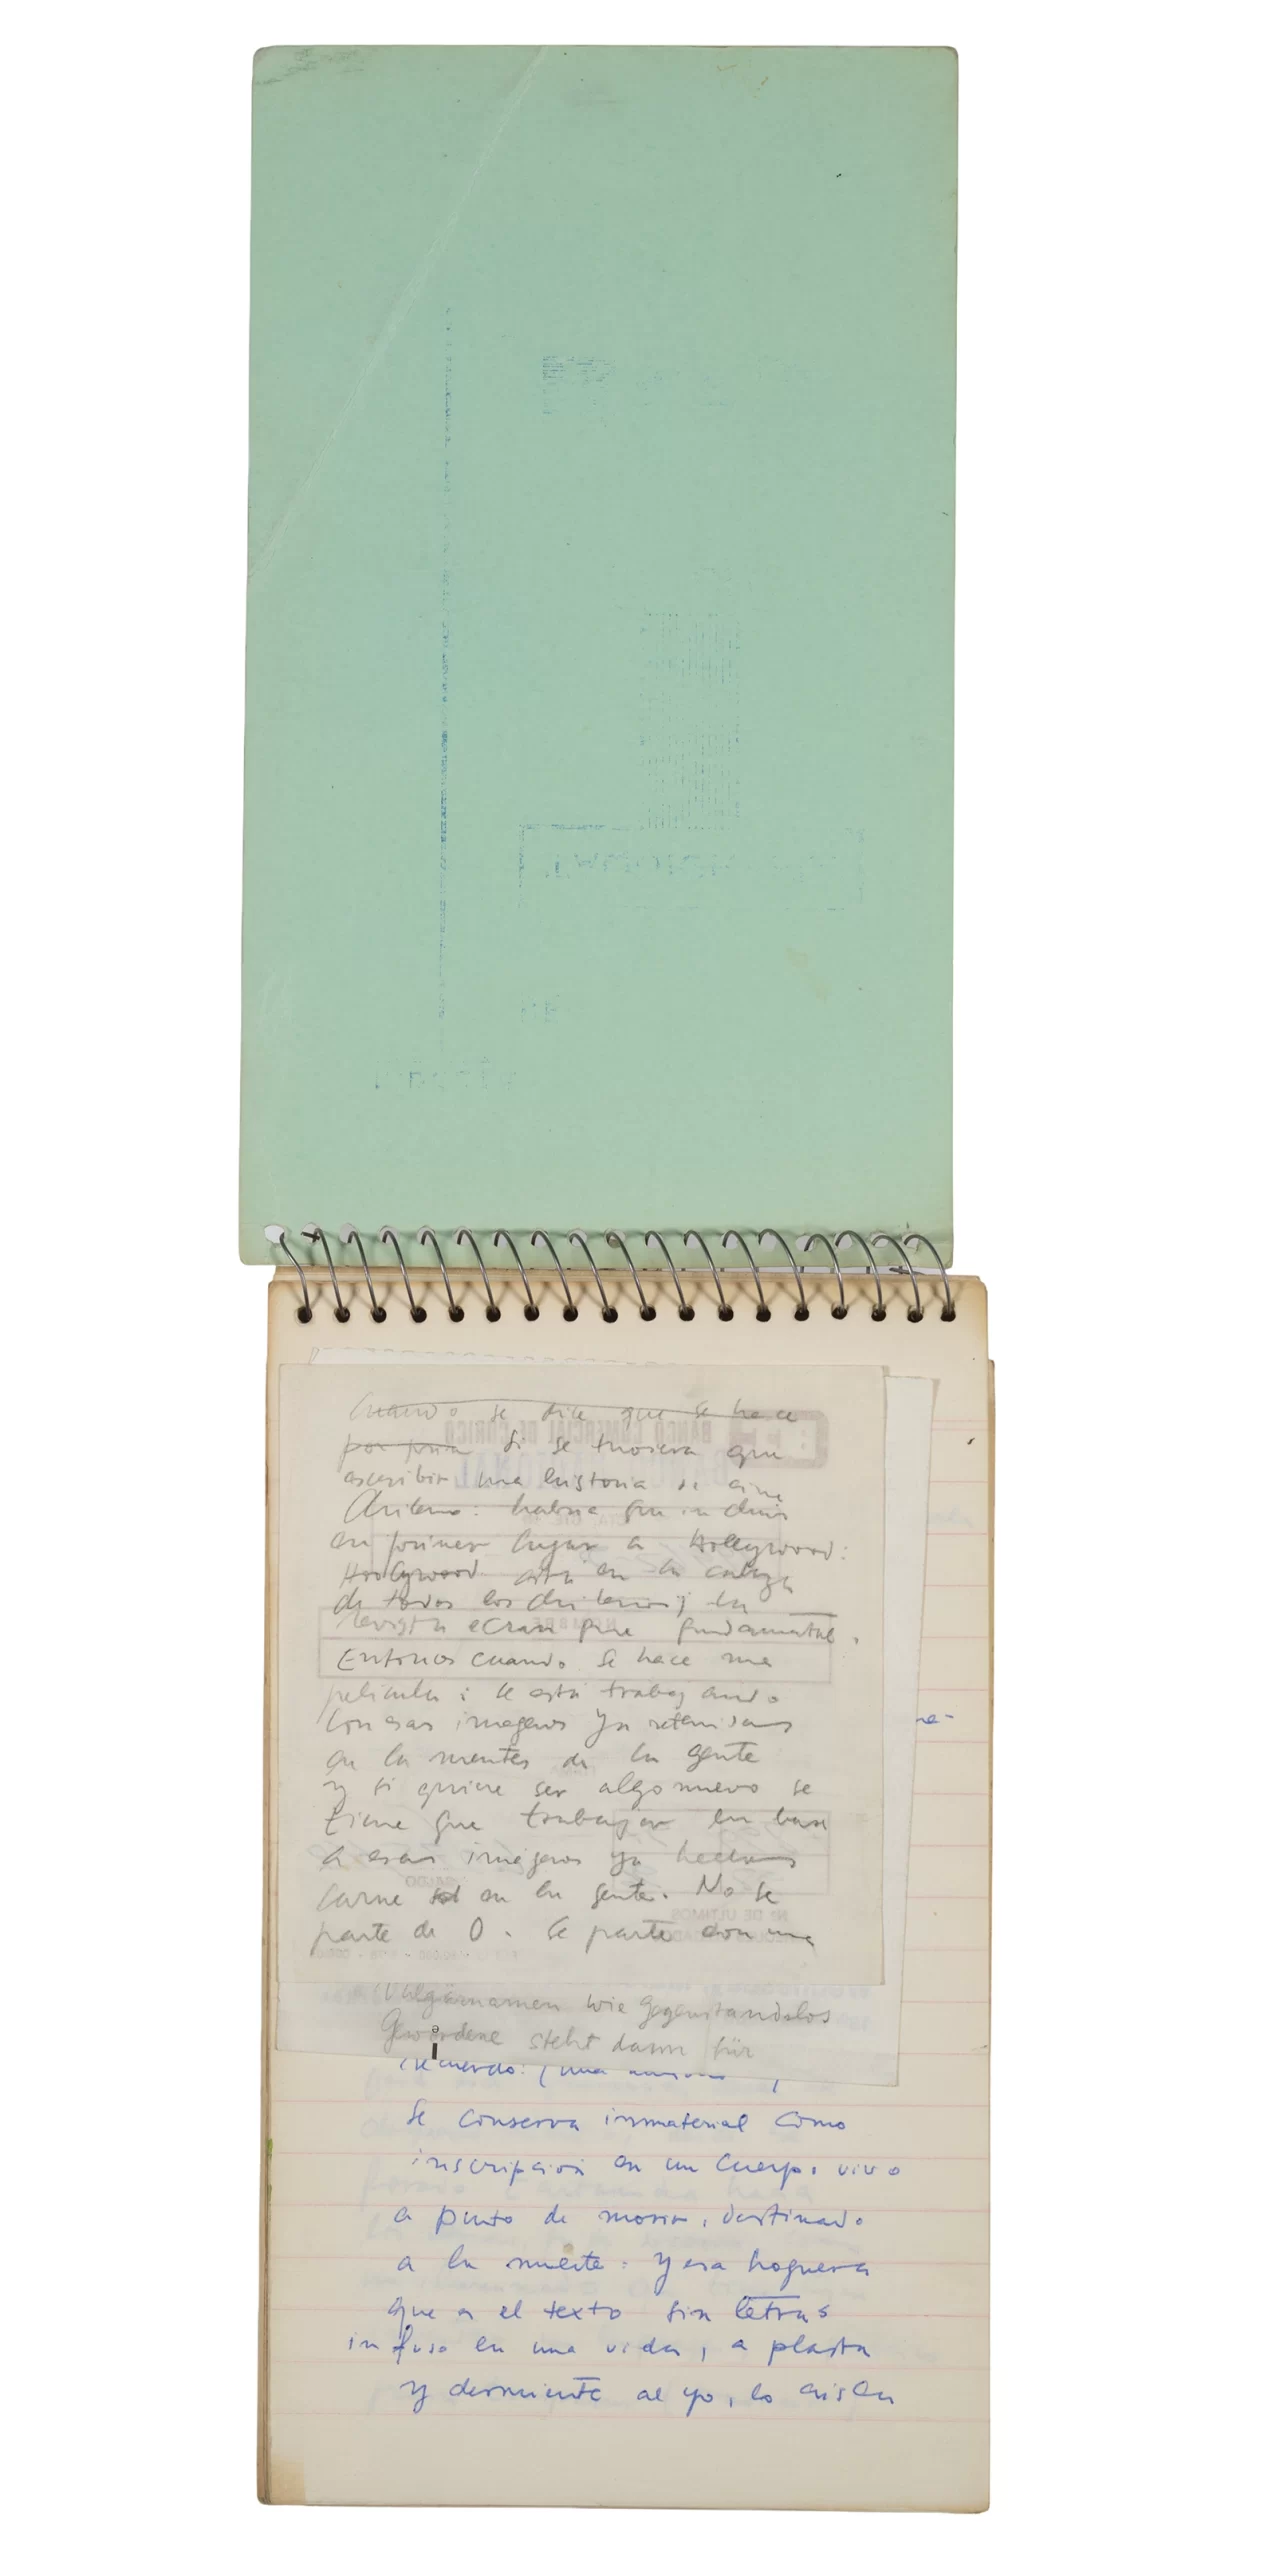 Cuando se dice que se hace
por Si se tuviera que
escribir una historia de cine
Chileno: habria que incluir
en primer lugar a Hollywood:
Hollywood está en la cabeza
de todos los chilenos; la
revista ecran fue fundamental.
Entonces cuando se hace una
pelicula: se está trabajando
con esas imagenes ya retenidas
en la mentes de la gente
y si quiere ser algo nuevo se
tiene que trabajar en base
a esas imagenes ya hechas
carne en la gente. No se
parte de 0. Se parte con una
Vulgärnamen wie gegenstandslos
Gewordene steht dann für
recuerdo: (una
se conserva inmaterial como
inscripción en un cuerpo vivo
a punto de morir, destinado
a la muerte: y esa hoguera
que es el texto sin letras
infuso en una vida, aplasta
y dermiente al yo, lo aisla
BANCO COMERCIAL DE CURICO
NOMBRE
SALDO
Nº DE ULTIMOS